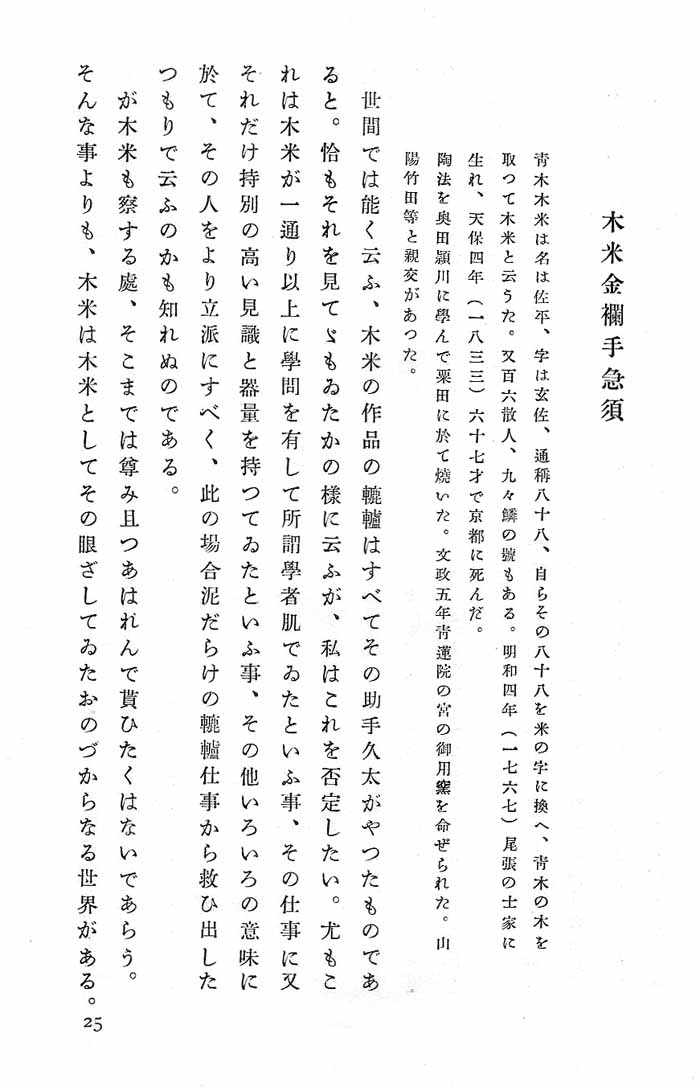 木米金襴手急須
靑木木米は名は佐平、字は玄佐、通稱八十八、自らその八十八を米の字に換へ、靑木の木を
取つて木米と云うた。又百六散人、九々鱗の號もある。明和四年（一七六七）尾張の士家に
生れ、天保四年（一八三三）六十七才で京都に死んだ。
陶法を奥田穎川に學んで粟田に於て燒いた。文政五年靑蓮院の宮の御用窯を命ぜられた。山
陽竹田等と親交があつた。
世間では能く云ふ、木米の作品の轆轤はすべてその助手久太がやつたものであ
ると。恰もそれを見てゞもゐたかの樣に云ふが、私はこれを否定したい。尤もこ
れは木米が一通り以上に學問を有して所謂學者肌でゐたといふ事、その仕事に又
それだけ持別の高い見識と器量を持つてゐたといふ事、その他いろいろの意味に
於て、その人をより立派にすべく、此の場合泥だらけの轆轤仕事から救ひ出した
つもりで云ふのかも知れぬのである。
が木米も察する處、そこまでは尊み且つあはれんで貰ひたくはないであらう。
そんな事よりも、木米は木米としてその眼ざしてゐたおのづからなる世界がある。
25